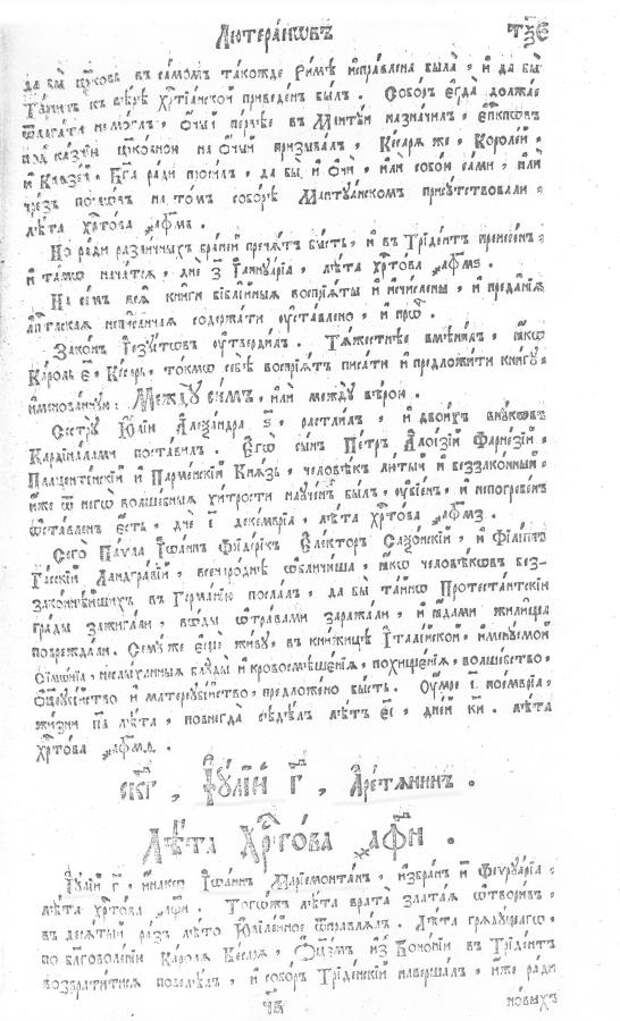 Лютерановъ
да бы црковь въ самомъ такожде Римѣ исправлена была, и да бы
къ вѣрѣ хрⷭтіанской приведенъ былъ. Соборъ егда должае
ѿлагати немоглъ, перѵѣе въ Мантуи назначилъ,
под казнїи црковною на призывалъ, Кесаря же, Королей,
и Князей, Бга ради просилъ, да бы и или собои сами, или
чрезъ пословъ на томъ соборѣ Мантуанскомъ присутствовали,
лѣта хрⷭтова
Но ради различныхъ браней пречятъ бысть, и въ Трїдентъ пренесенъ,
и тамѡ начатся, дне г҃ Іаннуарїа, лѣта хрⷭтова ҂афмѕ.
На семъ вся книги Бїблїйныя воспрїяты и исчислены, и преданїя
апⷭтлская неписанная содержати оуставлено, и прѡⷱ.
Законъ Іезуітѡвъ оутвердилъ. Тяжестнѣе вмѣнилъ, ꙗкѡ
Кароль е҃, Кесарь, токмѡ себѣ воспрїятъ писати и предложити книгу,
именованную: Между симъ, или между вѣрои.
Сестру Юлїи Алеѯандра ѕ҃, растлилъ, и двоихъ внукѡвъ
Кардїналами поставилъ. Егѡ сынъ Петръ Алоизїй Фарнезїй,
Плацентенскїй и Парменскїй Князь, человѣкъ лютый и беззаконный,
иже ѿ негѡ волшебныя хитрости наученъ былъ, оубїенъ, и непогребенъ
ѡставленъ есть, дне і҃ декемврїа, лѣта хрⷭтова ҂афмз.
Сего Паула Іѡаннъ Фрїдерїкъ Електоръ Саѯонскїй, и Фїлїппъ
Гасскїй Ландгравїй, всенароднѣ ѡбличиша, ꙗкѡ человѣкѡвъ без-
законнѣйшихъ въ Германїю послалъ, да бы тайнѡ Протестантскїи
грады зажигали, воды ѿравами заражали, и ядами жилища
повреждали. Семуже еще живу, въ книжицѣ Італїйской, именуемой
неслыханныя блуды и кровосмѣшенїя, похищенїя, волшебство,
ѻцеубїйство и матероубїйство, предложено бысть. Оумре і҃ ноемврїа,
жизни па лѣта, повнегда сѣдѣлъ лѣтъ еі, дней ки. лѣта
хрⷭтова ҂афмѳ.
скг, Іулїй г҃, Аретянинъ.
Лѣта Хрⷭтова ҂афн.
Іулїй г҃, инакѡ Іѡаннъ Марїемонтанъ, избранъ и҃ Феуруарїа,
лѣта хрⷭтова ҂афн. Тогѡжъ лѣта врата златая ѿворивъ,
въ десятый разъ лѣто Юбїлейное ѿправлялъ. Лѣта грядущагѡ,
по благоволенїи Кароля Кесаря, Ѻцемъ изъ Бононїи въ Трїдентъ
возвратитися повелѣлъ, и соборъ Трїденскїй навершалъ, иже ради
новыхъ